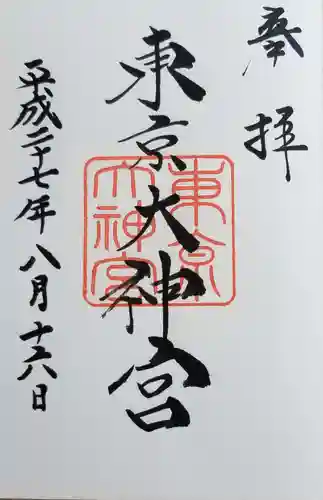 奉拝
東京大神宮
東京
大神宮
平成二十七年八月十六日